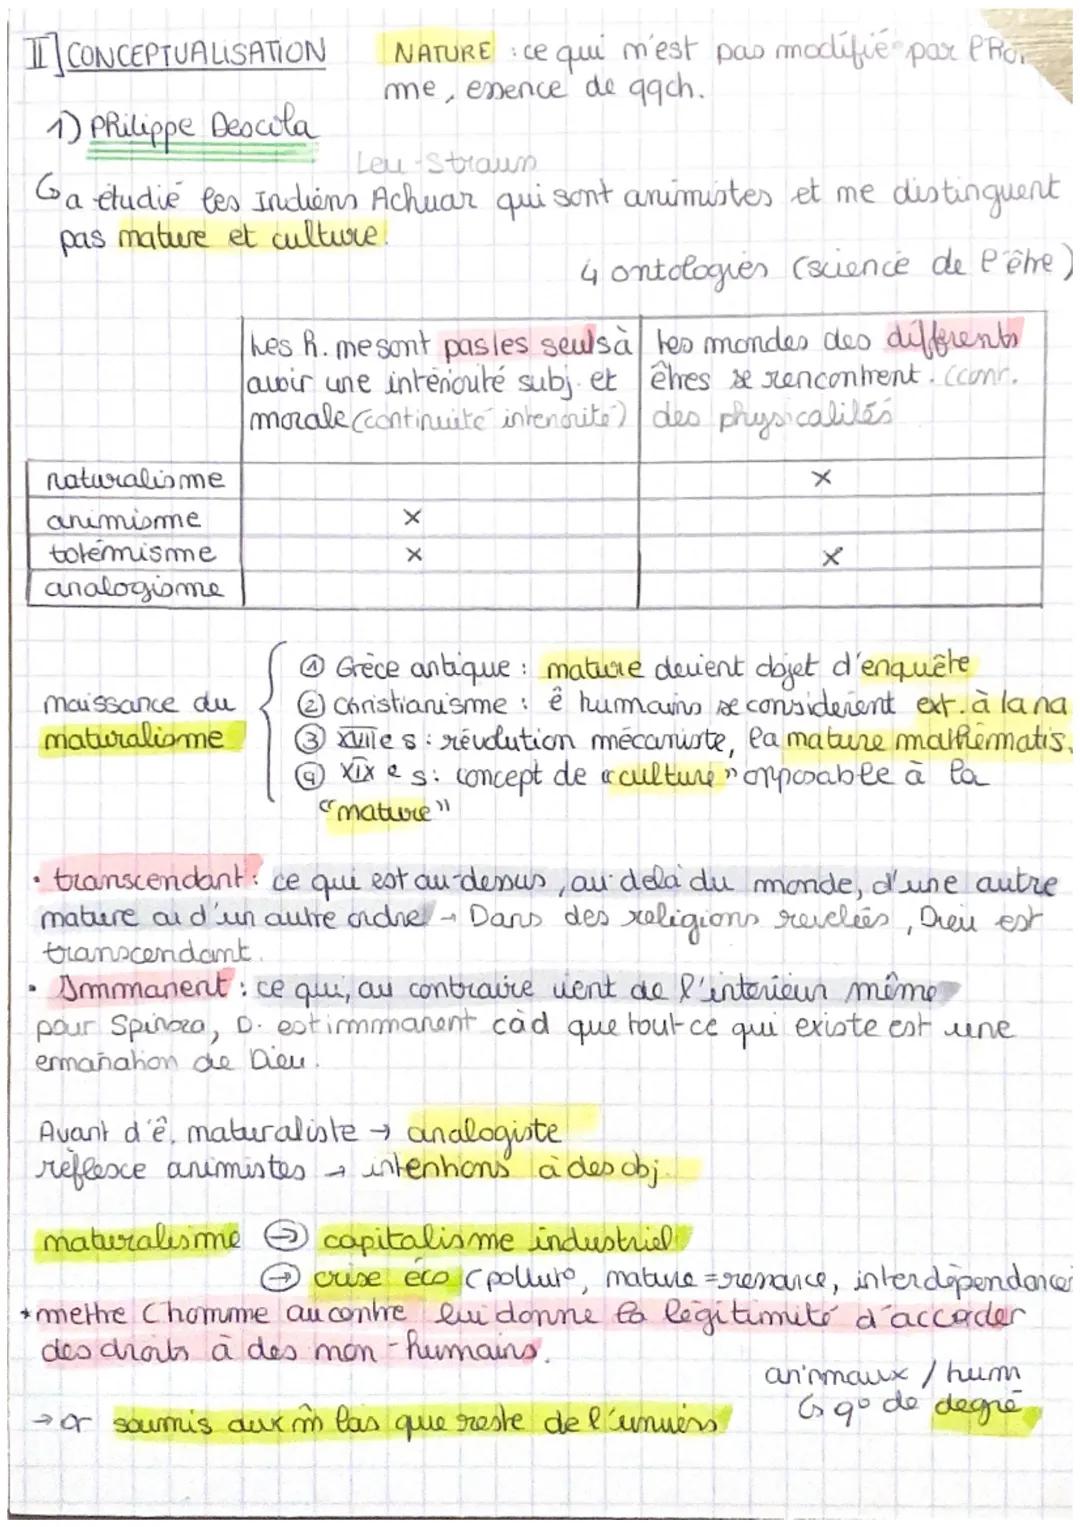 II] CONCEPTUALISATION
NATURE : ce qui n'est pas modifié par l'Ho
mme, essence de qqch.
1) Philippe Descola
Levi-Strauss
↳ a étudié les Indiens Achuar qui sont animistes et ne distinguent
pas nature et culture.
4 ontologies (science de l'être)
Les h. ne sont pas les seuls à
avoir une intériorité subj. et
morale (continuité intériorité)
Les mondes des différents
êtres se rencontrent. (cont.
des physicalités
naturalisme x
animisme x
totémisme x x
analogisme
naissance du
naturalisme
① Grèce antique : nature devient objet d'enquête
② Christianisme : ê humains se considèrent ext. à la na
③ XVIIe s : révolution mécaniste, la nature mathématis.
④ XIX e s : concept de "culture" opposable à la
"nature"
• transcendant : ce qui est au-dessus, au delà du monde, d'une autre
nature ou d'un autre ordre → Dans des religions révélées, Dieu est
transcendant.
• Immanent : ce qui, au contraire vient de l'intérieur même
pour Spinoza, D. est immanent càd que tout ce qui existe est une
émanation de Dieu.
Avant d'ê. naturaliste → analogiste
réflexe animistes → intentions à des obj.
naturalisme → capitalisme industriel
→ crise éco (polluto, nature = remance, interdépendance
* mettre l'homme au centre lui donne la légitimité d'accorder
des droits à des non-humains.
animaux / hum
↳ qo de degré
→ or soumis aux m̂ lois que reste de l'univers